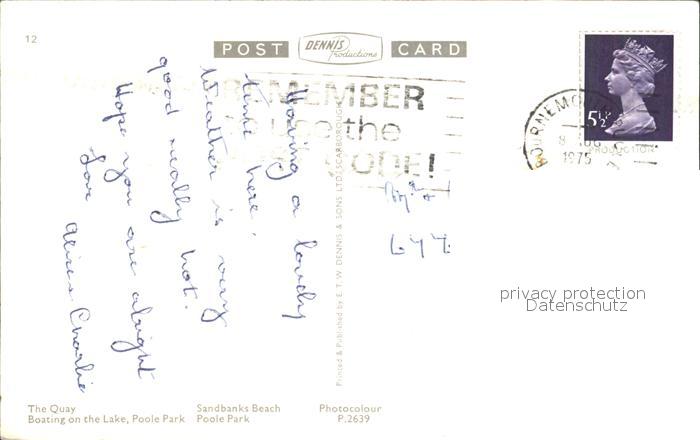 12
POST
DENNIS
Productions
CARD
REMEMBER
to use the
CODE!
5½P
BOURNEMOU
1975
Having a lovely
time here.
Weather is very
good really hot.
Hope you are alright
Love Alice & Charlie
Printed & Published by E.T.W. DENNIS & SONS LTD., SCARBOROUGH
privacy protection
Datenschutz
The Quay
Boating on the Lake, Poole Park
Sandbanks Beach
Poole Park
Photocolour
P.2639